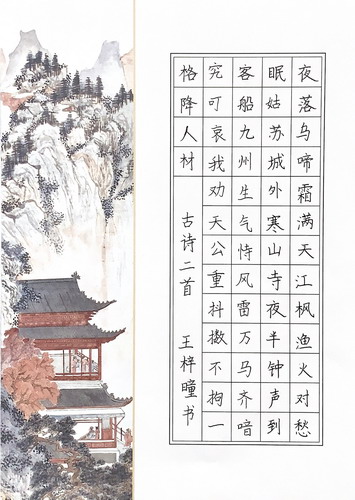 夜落乌啼霜满天江枫渔火对愁
眠姑苏城外寒山寺夜半钟声到
客船九州生气恃风雷万马齐喑
究可哀我劝天公重抖擞不拘一
格降人材
古诗二首 王梓曈书